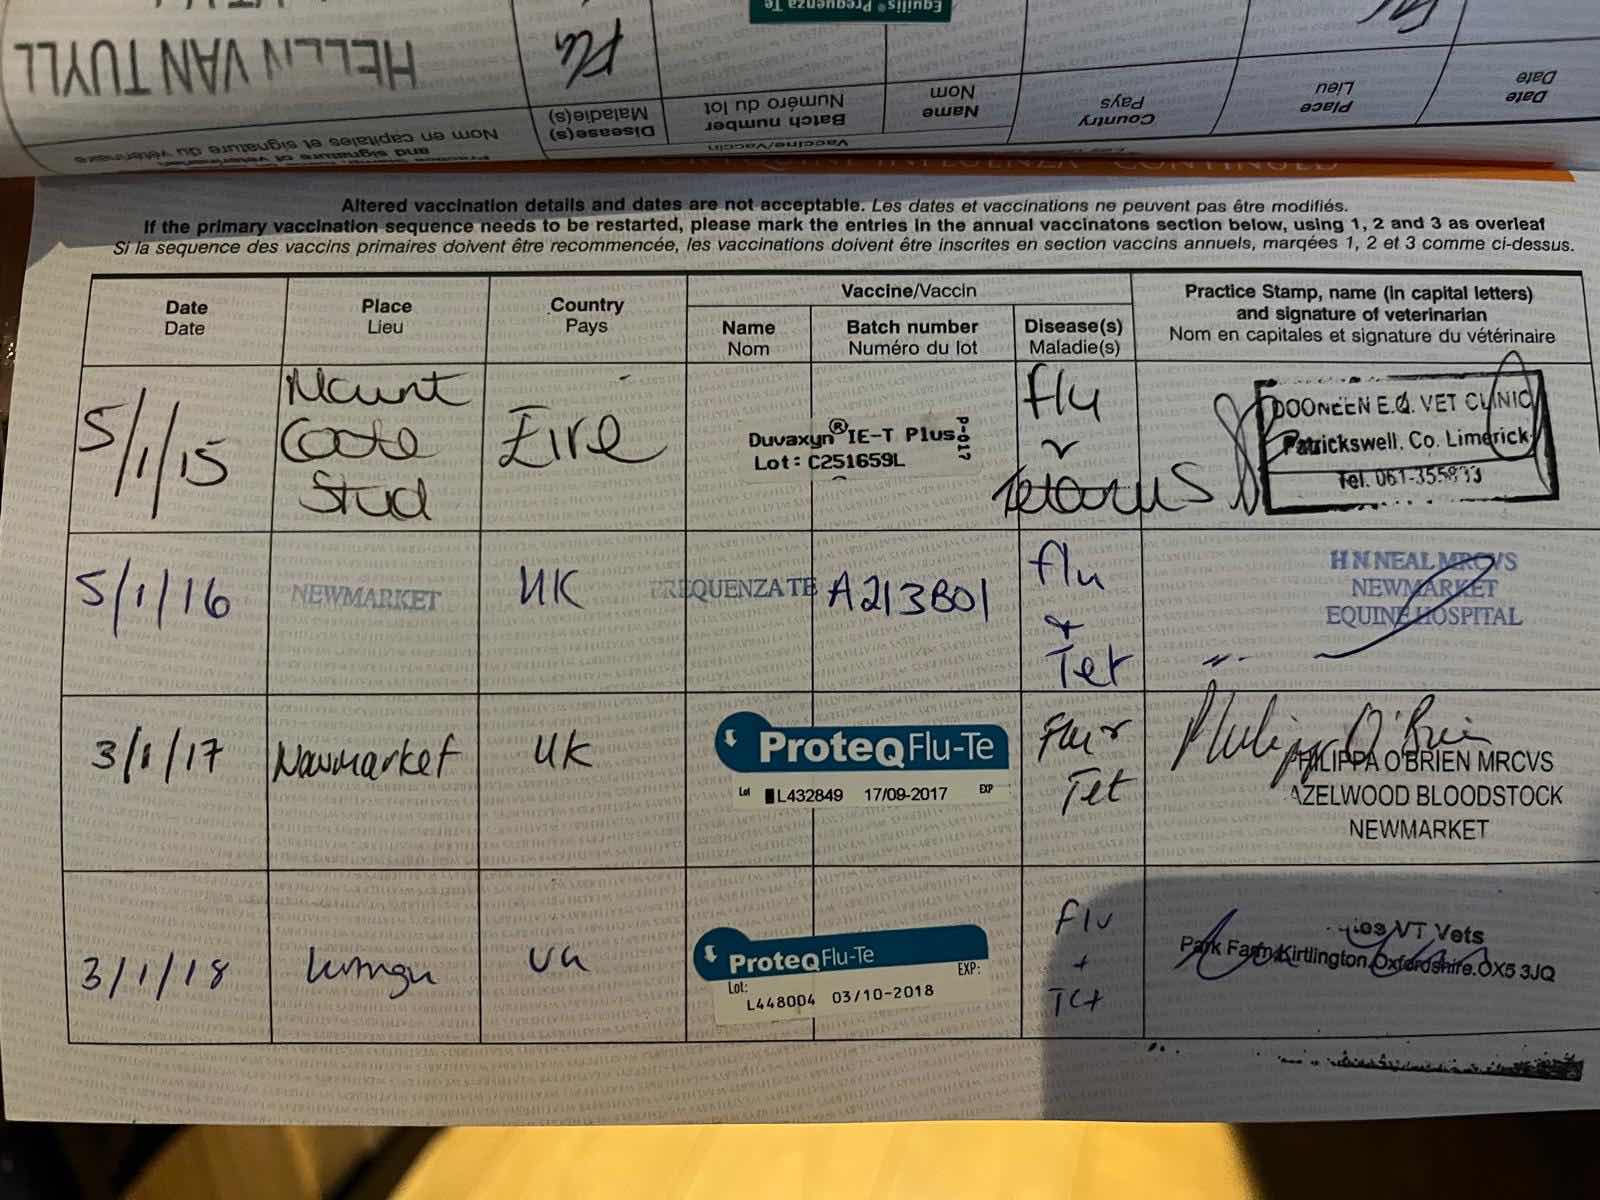 Equilis® Prequenza Te
HELEN VAN TUYLL
Flu
Date
Date
Place
Lieu
Country
Pays
Name
Nom
Batch number
Numéro du lot
Disease(s)
Maladie(s)
Vaccine/Vaccin
and signature of veterinarian
Nom en capitales et signature du vétérinaire
EQUINE INFLUENZA CONTINUED
Altered vaccination details and dates are not acceptable. Les dates et vaccinations ne peuvent pas être modifiés.
If the primary vaccination sequence needs to be restarted, please mark the entries in the annual vaccinatons section below, using 1, 2 and 3 as overleaf
Si la sequence des vaccins primaires doivent être recommencée, les vaccinations doivent être inscrites en section vaccins annuels, marqées 1, 2 et 3 comme ci-dessus.
Date
Date
Place
Lieu
Country
Pays
Vaccine/Vaccin
Name
Nom
Batch number
Numéro du lot
Disease(s)
Maladie(s)
Practice Stamp, name (in capital letters)
and signature of veterinarian
Nom en capitales et signature du vétérinaire
5/1/15
Mount
Coote
Stud
Eire
Duvaxyn® IE-T Plus
Lot: C251659L
P-017
flu
&
Tetanus
DOONEEN E.Q. VET CLINIC
Patrickswell. Co. Limerick
Tel. 061-355893
5/1/16
NEWMARKET
UK
PREQUENZA TE
A213B01
flu
&
Tet
H N NEAL MRCVS
NEWMARKET
EQUINE HOSPITAL
3/1/17
Newmarket
UK
ProteqFlu-Te
Lot L432849 17/09-2017 EXP
Flu &
Tet
Philippa O'Brien
PHILIPPA O'BRIEN MRCVS
AZELWOOD BLOODSTOCK
NEWMARKET
3/1/18
UK
ProteqFlu-Te
Lot:
EXP:
L448004 03/10-2018
Flu
+
Tet
VT Vets
Park Farm, Kirtlington, Oxfordshire. OX5 3JQ